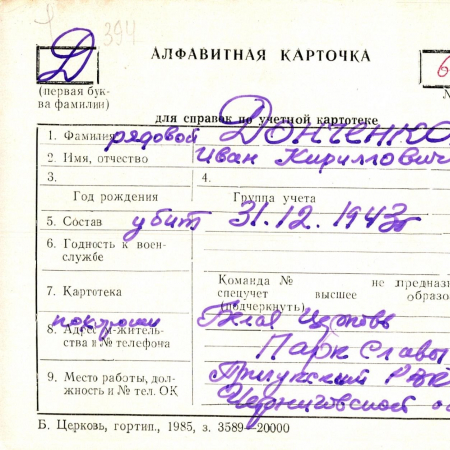 394
АЛФАВИТНАЯ КАРТОЧКА
Д
6
(первая бук-
ва фамилии)
для справок по учетной картотеке
1. Фамилия рядовой Донченко
2. Имя, отчество Иван Кириллович
3.
4.
Год рождения
Группа учета
5. Состав убит 31.12.1943г
6. Годность к воен-
службе
7. Картотека
Команда № не предназна
спецучет высшее образо
(подчеркнуть)
8. Адрес м-житель-
ства и № телефона
Белая Церковь
Парк Славы
9. Место работы, дол-
жность и № тел. ОК
Прилукский РВК
Черниговской о
Б. Церковь, гортип., 1985, з. 3589—20000